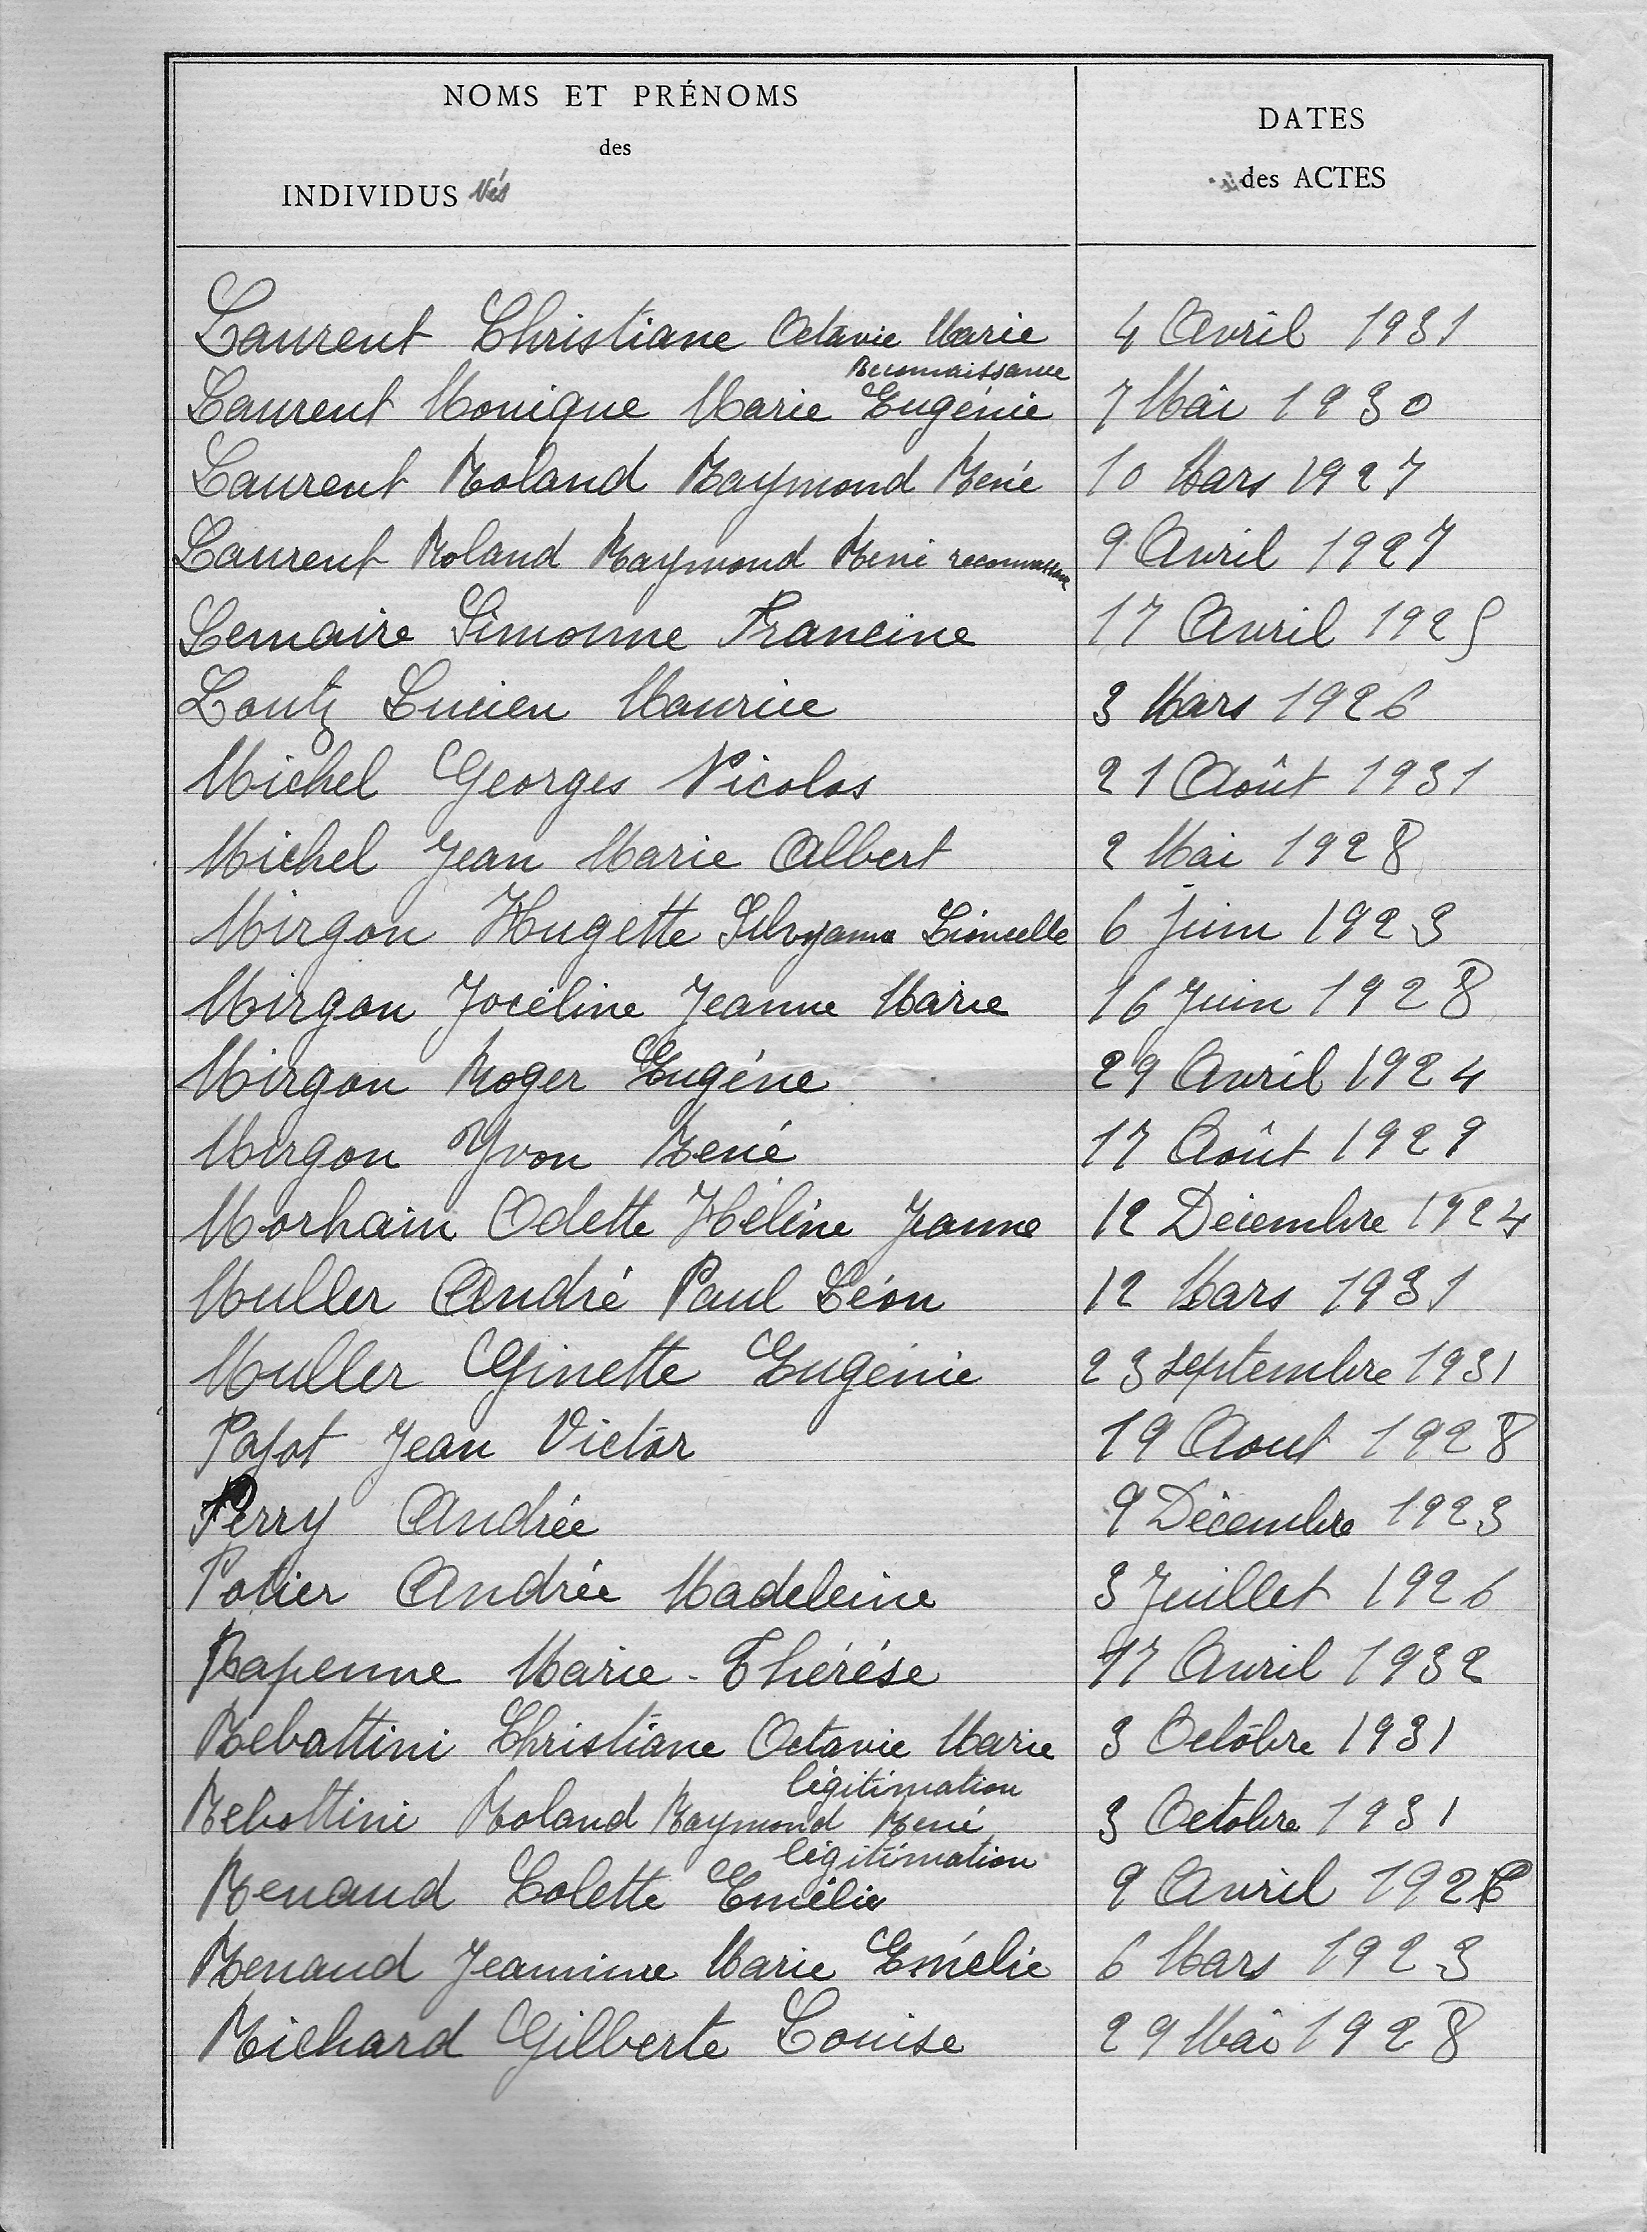 NOMS ET PRÉNOMS
des
INDIVIDUS Nés
DATES
des ACTES
Laurent Christiane Octavie Marie 4 Avril 1931
Reconnaissance
Laurent Monique Marie Eugénie 7 Mai 1930
Laurent Roland Raymond René 10 Mars 1927
Laurent Roland Raymond René reconnaissance 9 Avril 1927
Lemaire Simonne Francine 17 Avril 1925
Loutz Lucien Maurice 3 Mars 1926
Michel Georges Nicolas 21 Août 1931
Michel Jean Marie Albert 2 Mai 1928
Mirgon Hugette 6 Juin 1923
Mirgon Joceline Jeanne Marie 16 Juin 1928
Mirgon Roger Eugène 29 Avril 1924
Mirgon Yvon René 17 Août 1929
Morhain Odette Hélène Jeanne 12 Décembre 1924
Muller André Paul Léon 12 Mars 1931
Muller Ginette Eugénie 23 Septembre 1931
Payot Jean Victor 19 Aout 1928
Perry Andrée 9 Décembre 1923
Potier Andrée Madeleine 3 Juillet 1926
Rapenne Marie-Thérèse 17 Avril 1932
Rebattini Christiane Octavie Marie 3 Octobre 1931
légitimation
Rebottini Roland Raymond René 3 Octobre 1931
légitimation
Renaud Colette Emélie 9 Avril
Renaud Jeannine Marie Emélie 6 Mars 1923
Richard Gilberte Louise 29 Mai 1928